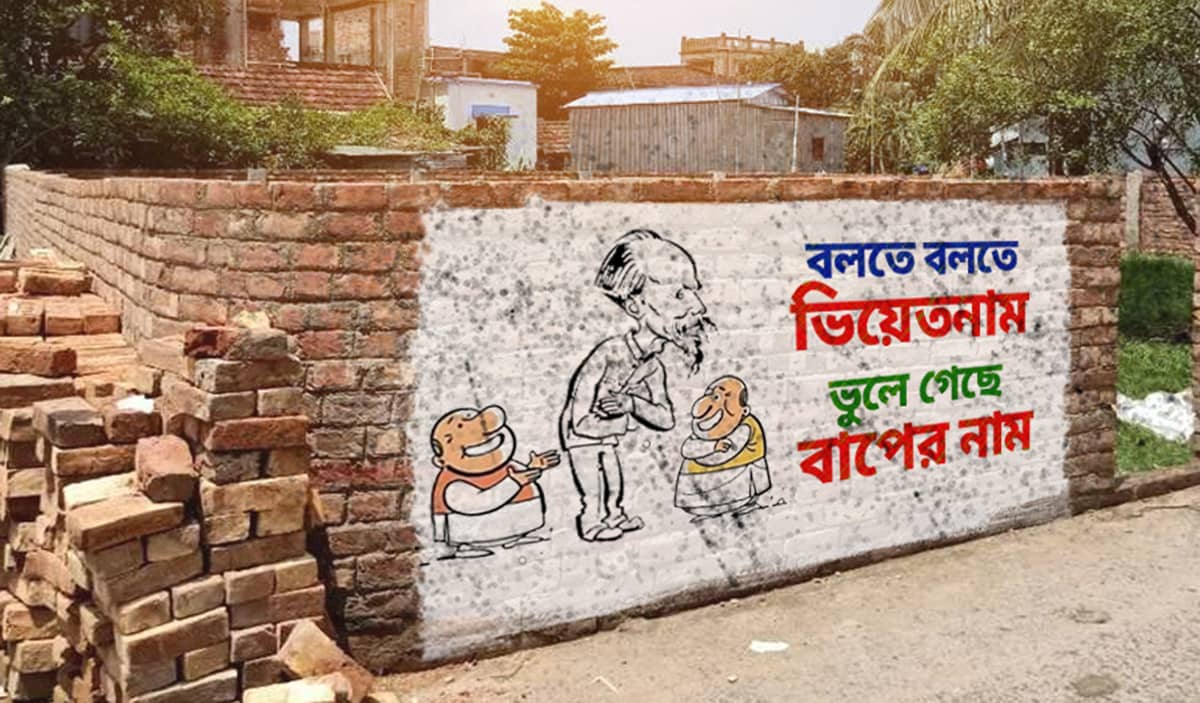 বলতে বলতে
ভিয়েতনাম
ভুলে গেছে
বাপের নাম